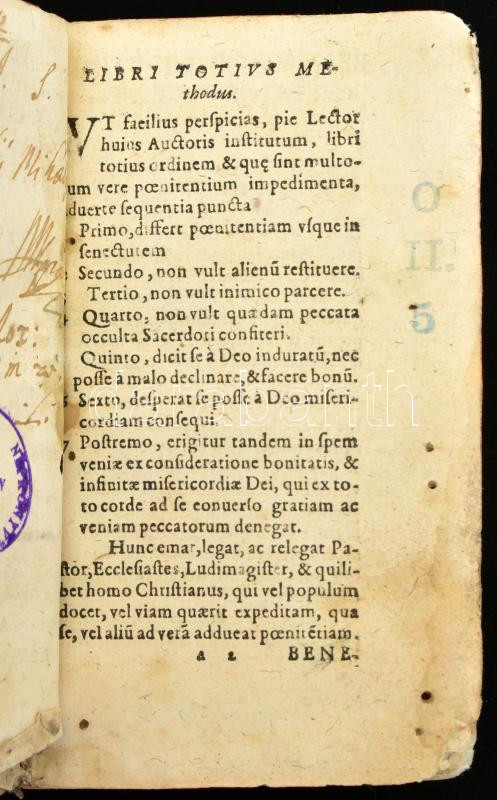 LIBRI TOTIVS ME-
thodus.
VT facilius perspicias, pie Lector
huius Auctoris institutum, libri
totius ordinem & quę sint multo-
um vere pœnitentium impedimenta,
duerte sequentia puncta
Primo, differt pœnitentiam vsque in
senectutem
Secundo, non vult alienũ restituere.
Tertio, non vult inimico parcere.
Quarto, non vult quædam peccata
occulta Sacerdoti confiteri.
Quinto, dicit se à Deo induratũ, nec
posse à malo declinare, & facere bonũ.
Sexto, desperat se posse à Deo miseri-
cordiam consequi.
Postremo, erigitur tandem in spem
veniæ ex consideratione bonitatis, &
infinitæ misericordiæ Dei, qui ex to-
to corde ad se conuerso gratiam ac
veniam peccatorum denegat.
Hunc emat, legat, ac relegat Pa-
stor, Ecclesiastes, Ludimagister, & quili-
bet homo Christianus, qui vel populum
docet, vel viam quærit expeditam, qua
se, vel aliũ ad verã adducat pœnitẽtiam.
a 2 BENE-
O
II.
5